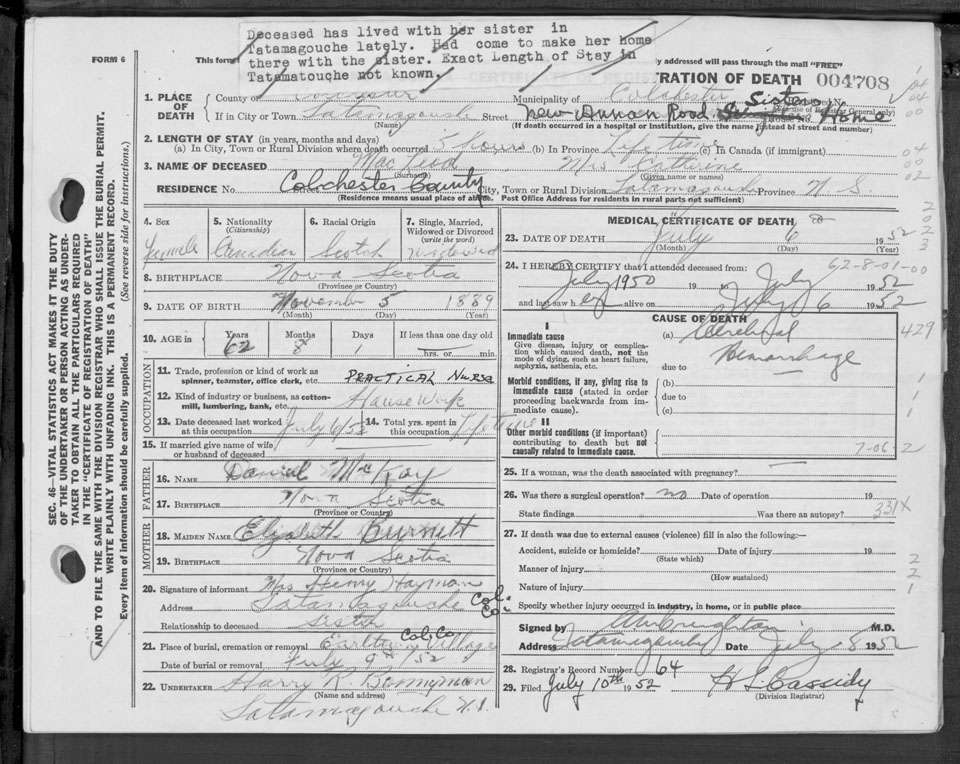 Deceased has lived with her sister in
Tatamagouche lately. Had come to make her home
there with the sister. Exact Length of Stay in
Tatamatouche not known.
FORM 6
This form
y addressed will pass through the mail "FREE"
TRATION OF DEATH 004708
1. PLACE OF DEATH
County of Colchester Municipality of Colchester
If in City or Town Tatamagouche Street New Annan Road Sisters Home
(Name) (If death occurred in a hospital or institution, give the name instead of street and number)
2. LENGTH OF STAY (in years, months and days)
(a) In City, Town or Rural Division where death occurred 5 hours (b) In Province Lifetime (c) In Canada (if immigrant)
3. NAME OF DECEASED MacLeod Mrs
(Surname) (Given name or names)
RESIDENCE No. Colchester County City, Town or Rural Division Tatamagouche Province N. S.
(Residence means usual place of abode. Post Office Address for residents in rural parts not sufficient)
4. Sex Female
5. Nationality (Citizenship) Canadian
6. Racial Origin Scotch
7. Single, Married, Widowed or Divorced (write the word) Widowed
8. BIRTHPLACE Nova Scotia
(Province or Country)
9. DATE OF BIRTH November 5 1889
(Month) (Day) (Year)
10. AGE in Years 62 Months 8 Days 1 If less than one day old hrs. or min.
OCCUPATION
11. Trade, profession or kind of work as spinner, teamster, office clerk, etc. PRACTICAL NURSE
12. Kind of industry or business, as cotton-mill, lumbering, bank, etc. House Work
13. Date deceased last worked at occupation July 6/52
14. Total yrs. spent in this occupation Lifetime
15. If married give name of wife or husband of deceased
FATHER
16. NAME Daniel McKay
17. BIRTHPLACE Nova Scotia
(Province or Country)
MOTHER
18. MAIDEN NAME Elizabeth Burnett
19. BIRTHPLACE Nova Scotia
(Province or Country)
20. Signature of informant Mrs Henry Hayman
Address Tatamagouche Col. Co.
Relationship to deceased Sister
21. Place of burial, cremation or removal Earltown Village Col. Co.
Date of burial or removal July 9th/52
22. UNDERTAKER Harry R. Bonnyman
(Name and address)
Tatamagouche N.S.
MEDICAL CERTIFICATE OF DEATH
23. DATE OF DEATH July 6 1952
(Month) (Day) (Year)
24. I HEREBY CERTIFY that I attended deceased from: 62-8-01-00
July 1950 19 to July 1952
and last saw her alive on July 6 1952
CAUSE OF DEATH
I
Immediate cause
Give disease, injury or complication which caused death, not the mode of dying, such as heart failure, asphyxia, asthenia, etc.
(a) Cerebral Hemorrhage
due to
429
Morbid conditions, if any, giving rise to immediate cause (stated in order proceeding backwards from immediate cause).
(b)
due to
(c)
II
Other morbid conditions (if important) contributing to death but not causally related to immediate cause.
7-06-2
25. If a woman, was the death associated with pregnancy?
26. Was there a surgical operation? no Date of operation 19
State findings Was there an autopsy? 331X
27. If death was due to external causes (violence) fill in also the following:-
Accident, suicide or homicide? Date of injury 19
(State which)
Manner of injury
(How sustained)
Nature of injury
Specify whether injury occurred in industry, in home, or in public place
Signed by M.D.
Tatamagouche Date July 8 1952
28. Registrar's Record Number 64
29. Filed July 10th 1952 H S Cassidy
(Division Registrar)
SEC. 46—VITAL STATISTICS ACT MAKES IT THE DUTY
OF THE UNDERTAKER OR PERSON ACTING AS UNDER-
TAKER TO OBTAIN ALL THE PARTICULARS REQUIRED
IN THE "CERTIFICATE OF REGISTRATION OF DEATH"
AND TO FILE THE SAME WITH THE DIVISION REGISTRAR WHO SHALL ISSUE THE BURIAL PERMIT.
WRITE PLAINLY WITH UNFADING INK. THIS IS A PERMANENT RECORD.
Every item of information should be carefully supplied. (See reverse side for instructions.)